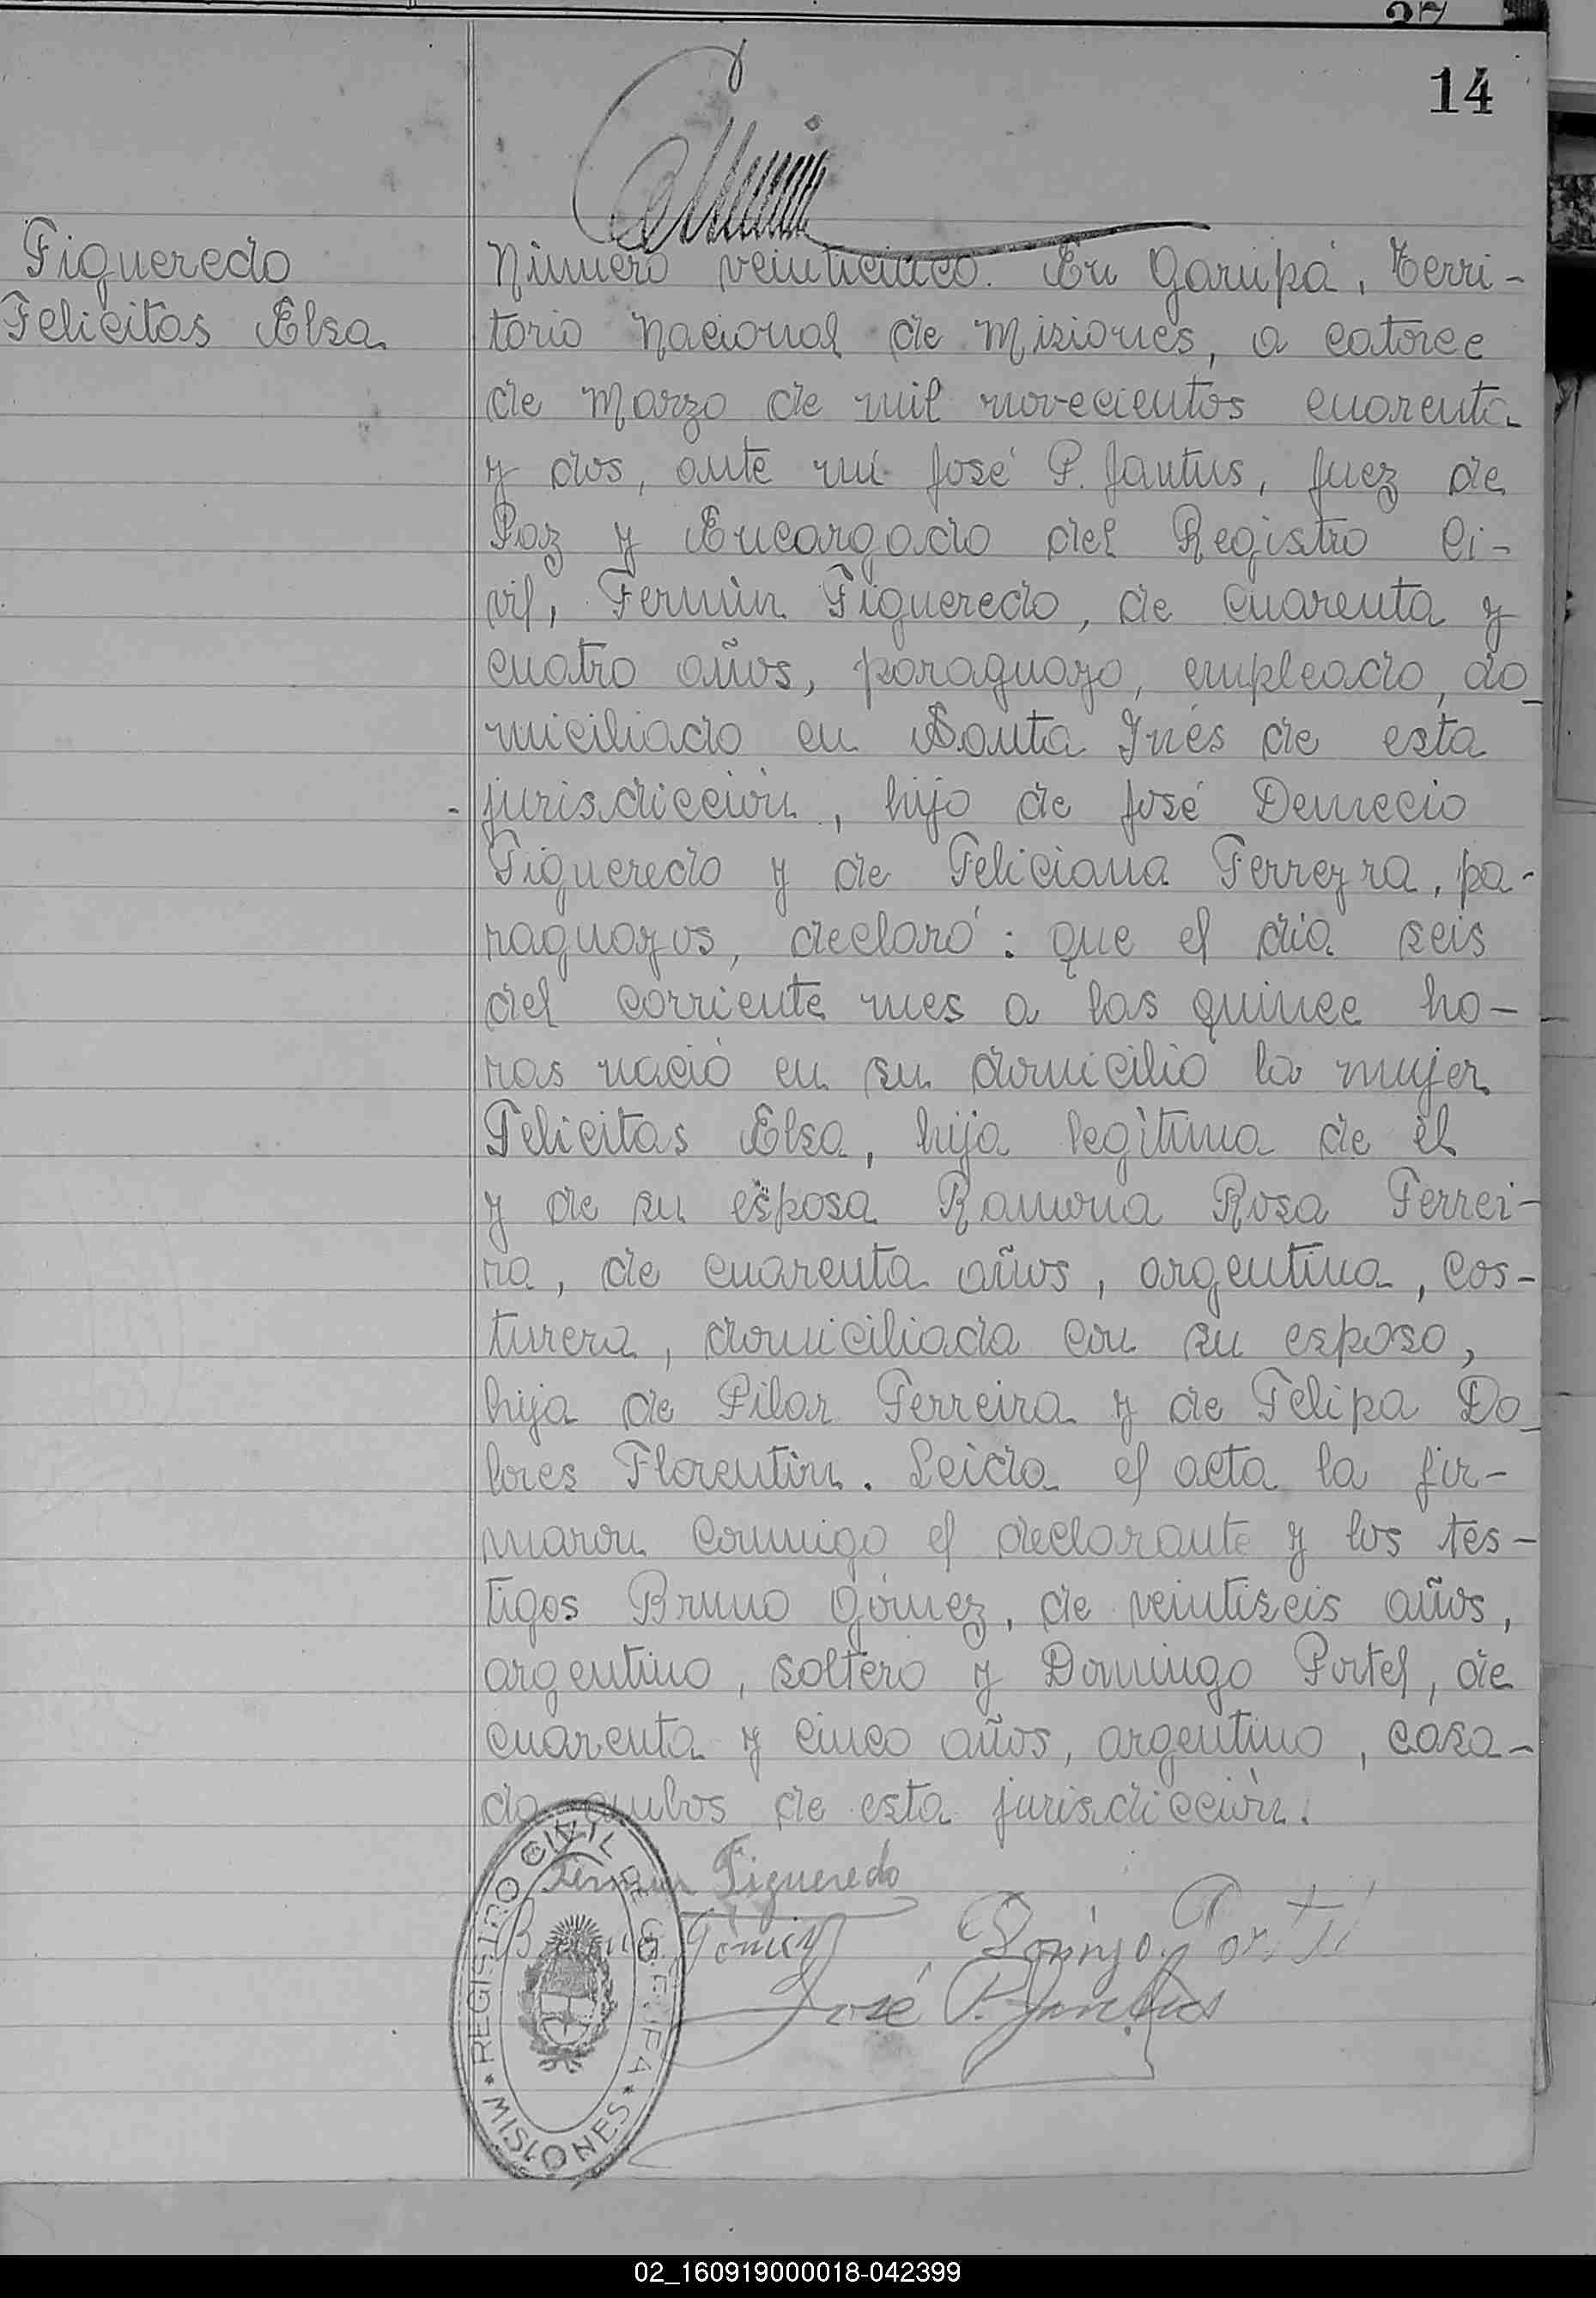 14
Figueredo
Felicitas Elsa
Número veinticinco. En Garupá, Terri-
torio Nacional de Misiones, a catorce
de Marzo de mil novecientos cuarenta
y dos, ante mí José P. Jantus, Juez de
Paz y Encargado del Registro Ci-
vil, Fermín Figueredo, de cuarenta y
cuatro años, paraguayo, empleado, do-
miciliado en Santa Inés de esta
jurisdicción, hijo de José Demecio
Figueredo y de Feliciana Ferreyra, pa-
raguayos, declaró: que el día seis
del corriente mes a las quince ho-
ras nació en su domicilio la mujer
Felicitas Elsa, hija legítima de él
y de su esposa Ramona Rosa Ferrei-
ra, de cuarenta años, argentina, cos-
turera, domiciliada con su esposo,
hija de Pilar Ferreira y de Felipa Do-
lores Florentín. Leida el acta la fir-
maron conmigo el declarante y los tes-
tigos Bruno Gómez, de veintiseis años,
argentino, soltero y Domingo Portel, de
cuarenta y cinco años, argentino, casa-
do ambos de esta jurisdicción.
Fermin Figueredo
Bruno Gómez Domingo Portel
José P. Jantus
REGISTRO CIVIL DE GARUPA
* MISIONES *
02_160919000018-042399